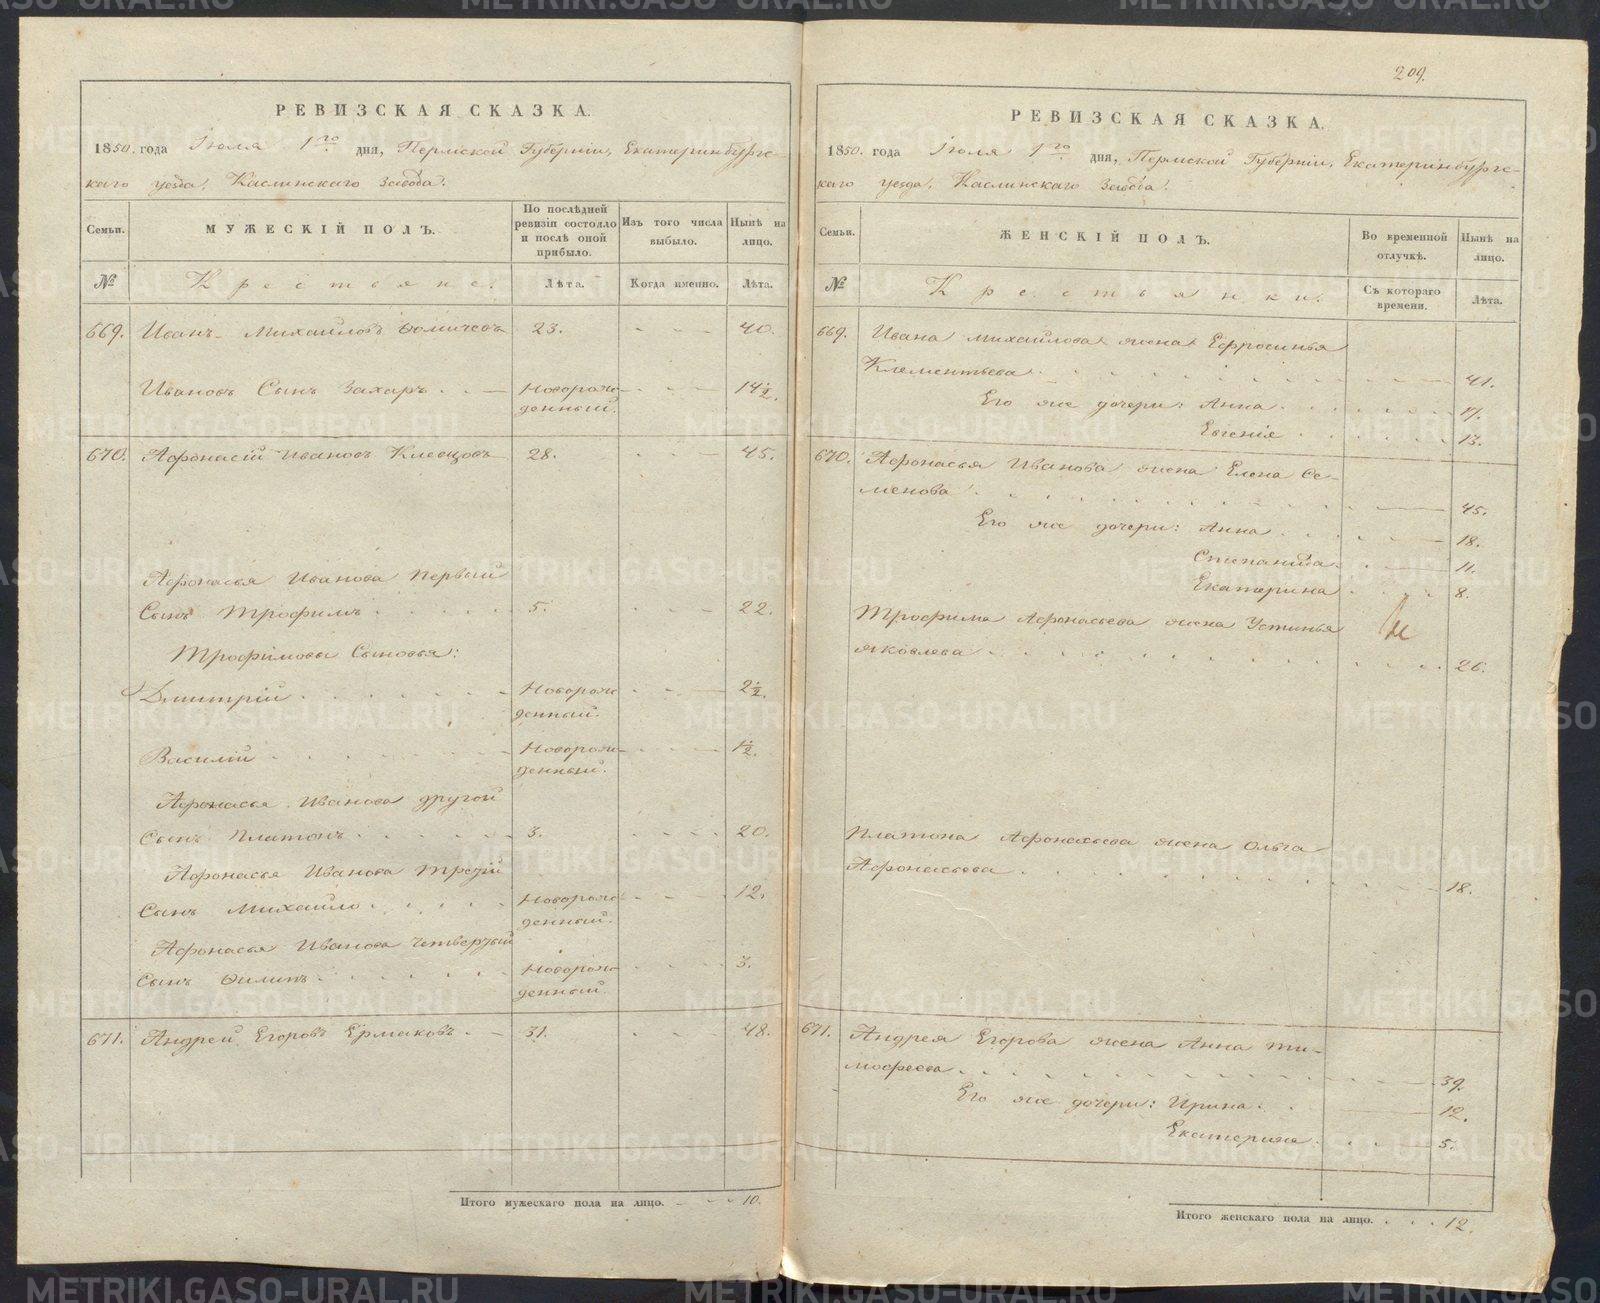 РЕВИЗСКАЯ СКАЗКА.
1850. года Іюля 1го дня, Пермской Губерніи, Екатеринбургс-
каго уезда, Каслинскаго Завода.
Семьи.
МУЖЕСКІЙ ПОЛЪ.
По послѣдней ревизіи состояло и послѣ оной прибыло.
Изъ того числа выбыло.
Нынѣ на лицо.
№
Крестьяне.
Лѣта.
Когда именно.
Лѣта.
669. Иванъ Михайловъ Ѳомичевъ 23. 40.
Ивановъ Сынъ Захаръ Новорож- 14½.
денный.
670. Афонасій Ивановъ Клевцовъ 28. 45.
Афонасья Иванова первый
Сынъ Трофимъ 5. 22.
Трофимовы Сыновья:
Дмитрій Новорож- 2½.
денный.
Василій Новорож- ½.
денный.
Афонасья Иванова другой
Сынъ Платонъ 3. 20.
Афонасья Иванова третій
Сынъ Михайло Новорож- 12.
денный.
Афонасья Иванова четвертый
Сынъ Филипъ Новорож- 3.
денный.
671. Андрей Егоровъ Ермаковъ 31. 48.
Итого мужескаго пола на лицо. 10.
209.
РЕВИЗСКАЯ СКАЗКА.
1850. года Іюля 1го дня, Пермской Губерніи, Екатеринбургс-
каго уезда, Каслинскаго Завода.
Семьи.
ЖЕНСКІЙ ПОЛЪ.
Во временной отлучкѣ.
Нынѣ на лицо.
№
Крестьянки.
Съ котораго времени.
Лѣта.
669. Ивана Михайлова жена Ефросинья
Клементьева 41.
Его же дочери: Анна 17.
Евгенія 13.
670. Афонасья Иванова жена Елена Се-
менова 45.
Его же дочери: Анна 18.
Степанида 11.
Екатерина 8.
Трофима Афонасьева жена Устинья
Яковлева 26.
Платона Афонасьева жена Ольга
Афонасьева 18.
671. Андрея Егорова жена Анна Ти-
мофеева 39.
Его же дочери: Ирина 12.
Екатерина 5.
Итого женскаго пола на лицо. 12.
METRIKI.GASO-URAL.RU